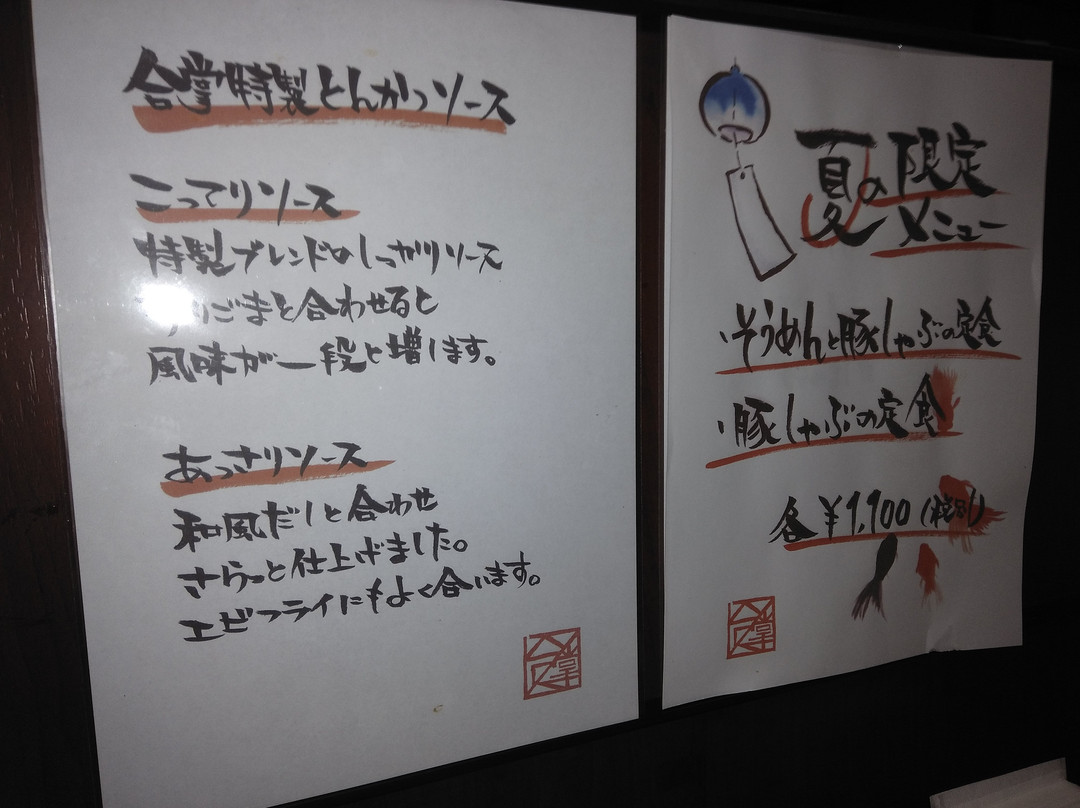 合掌特製とんかつソース
こってりソース
特製ブレンドのしっかりソース
すりごまと合わせると
風味が一段と増します。
あっさりソース
和風だしと合わせ
さらっと仕上げました。
エビフライにもよく合います。
夏の限定
メニュー
・そうめんと豚しゃぶの定食
・豚しゃぶの定食
各¥1,100(税別)